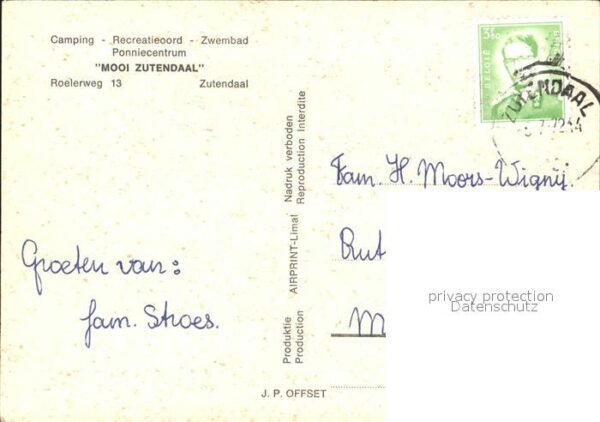 Camping - Recreatieoord - Zwembad
Ponniecentrum
"MOOI ZUTENDAAL"
Roelerweg 13 Zutendaal
Groeten van:
fam. Stroes.
Produktie AIRPRINT-Limal Nadruk verboden
Production Reproduction Interdite
J. P. OFFSET
BELGIË
ZUTENDAAL
Fam. H. Moors-Wignij.
Rut
M
privacy protection
Datenschutz